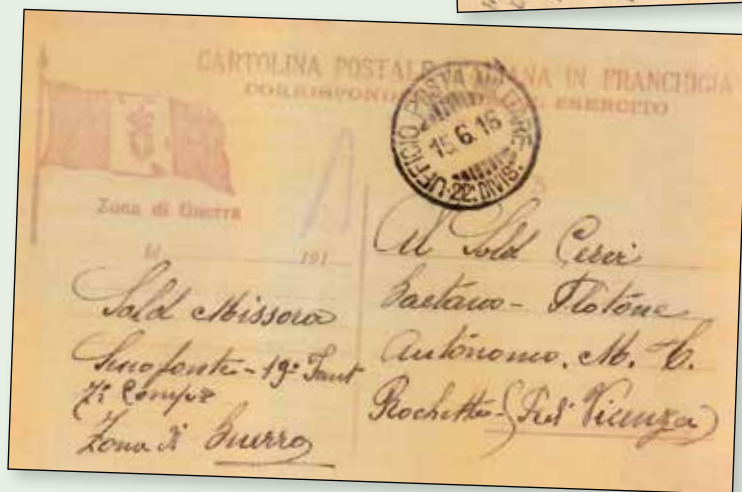 CARTOLINA POSTALE ITALIANA IN FRANCHIGIA
CORRISPONDENZA ESERCITO
UFFICIO POSTA MILITARE
15.6.16
22ª DIVIS.
Zona di Guerra
li 191
Sold Missora
Senofonte - 19º Fant
7ª Compª
Zona di Guerra
Al Sold Cervi
Gaetano - Plotone
Autonomo. M. C.
Rochette - (Vicenza)